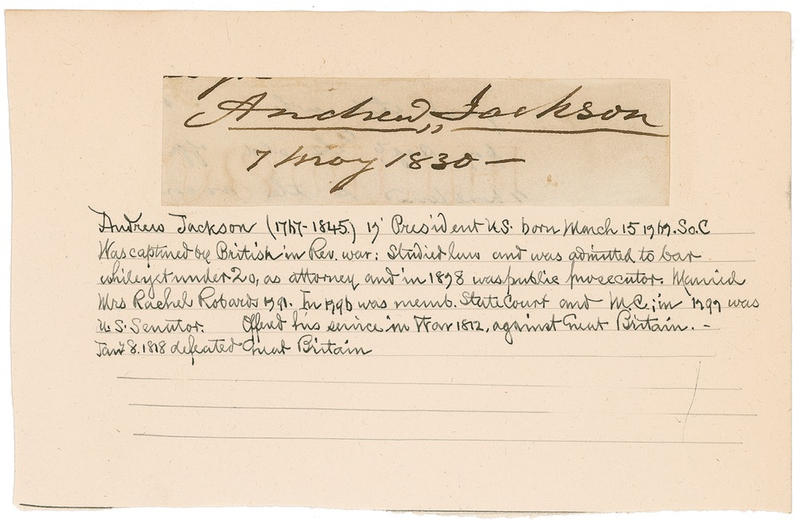 Andrew Jackson
7 May 1830 –
Andrew Jackson (1767-1845) 7' President U.S. born March 15 1767. So.C
Was captured by British in Rev. war: Studied law and was admitted to bar
while yet under 20, as attorney and in 1898 was public prosecutor. Married
Mrs Rachel Robards 1791. In 1796 was memb. State Court and M.C; in 1797 was
U.S. Senator. Offered his service in War 1812, against Great Britain. –
Jany 8. 1818 defeated Great Britain